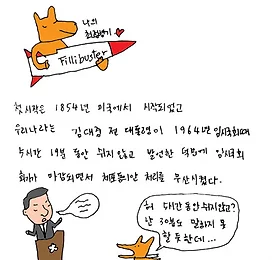 나의
Fillibuster
첫 시작은 1854년 미국에서 시작되었고
우리나라는 김대중 전 대통령이 1964년 임시국회때
5시간 19분 동안 쉬지 않고 발언한 덕분에 임시국회
회기가 마감되면서 체포동의안 처리를 무산시켰다.
허 5시간 동안 쉬지않고?
난 30분도 말하지 못
할 듯한데...